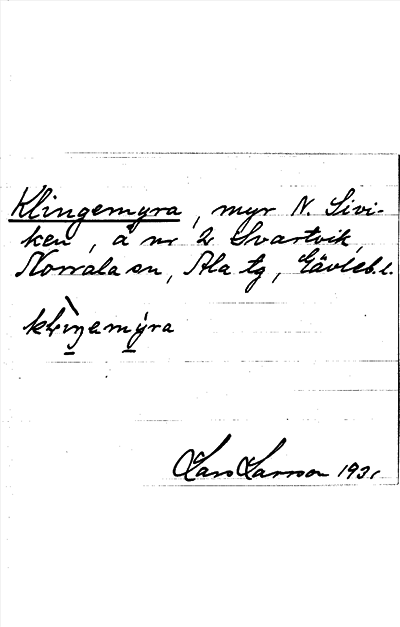 Klingemyra, myr N. Sivi-
ken, å nr 2 Svartvik,
Norrala sn, Ala tg, Gävleb.l.
klìŋemýra
Lars Larsson 1931